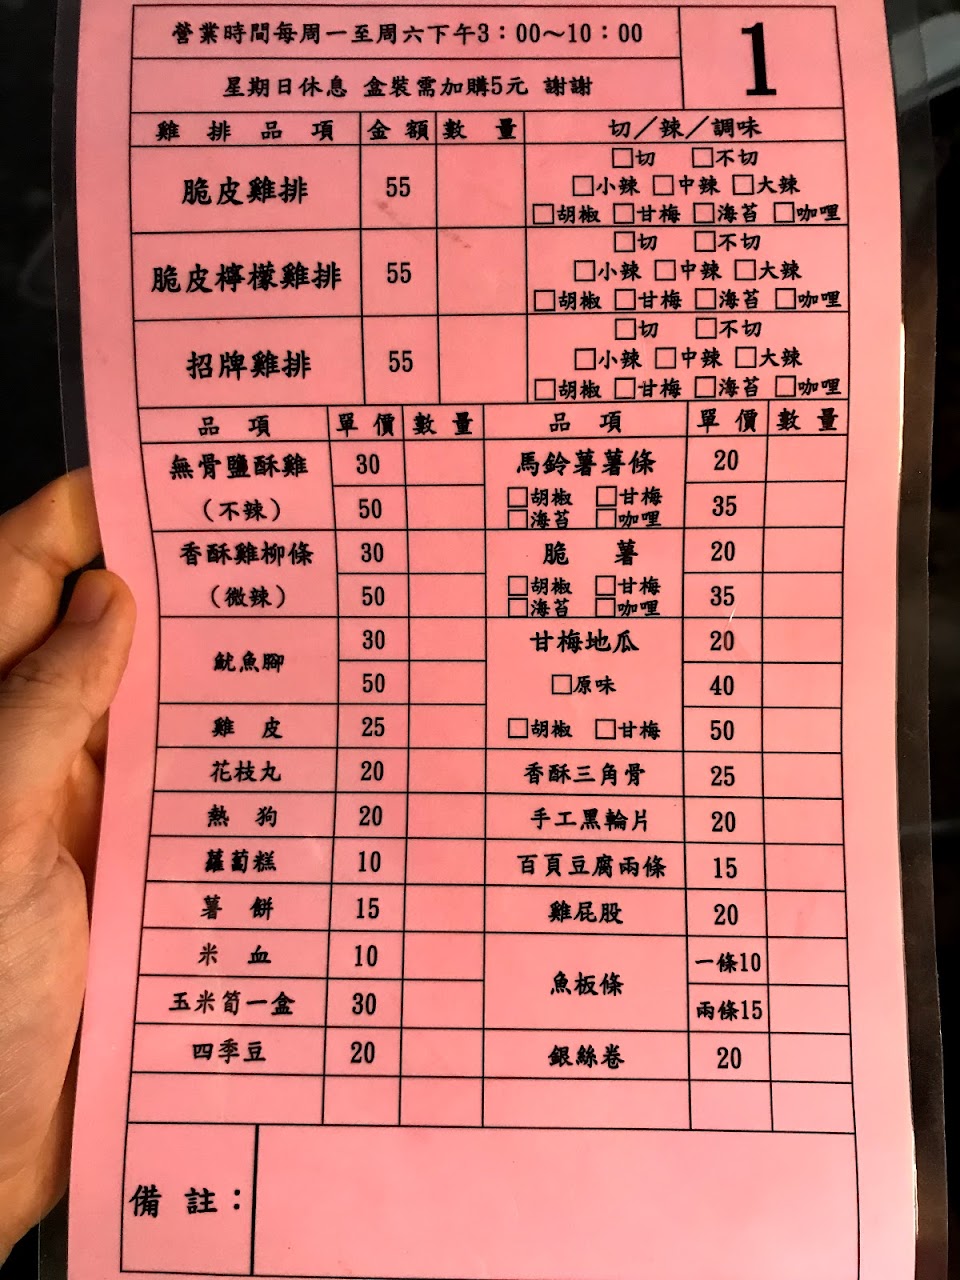 營業時間每周一至周六下午3：00～10：00
1
星期日休息 盒裝需加購5元 謝謝
雞排品項 金額 數量 切／辣／調味
脆皮雞排 55
□切 □不切
□小辣 □中辣 □大辣
□胡椒 □甘梅 □海苔 □咖哩
脆皮檸檬雞排 55
□切 □不切
□小辣 □中辣 □大辣
□胡椒 □甘梅 □海苔 □咖哩
招牌雞排 55
□切 □不切
□小辣 □中辣 □大辣
□胡椒 □甘梅 □海苔 □咖哩
品項 單價 數量 品項 單價 數量
無骨鹽酥雞 30 馬鈴薯薯條 20
（不辣） 50 □胡椒 □甘梅 35
□海苔 □咖哩
香酥雞柳條 30 脆薯 20
（微辣） 50 □胡椒 □甘梅 35
□海苔 □咖哩
魷魚腳 30 甘梅地瓜 20
50 □原味 40
雞皮 25 □胡椒 □甘梅 50
花枝丸 20 香酥三角骨 25
熱狗 20 手工黑輪片 20
蘿蔔糕 10 百頁豆腐兩條 15
薯餅 15 雞屁股 20
米血 10 魚板條 一條10
玉米筍一盒 30 兩條15
四季豆 20 銀絲卷 20
備註：